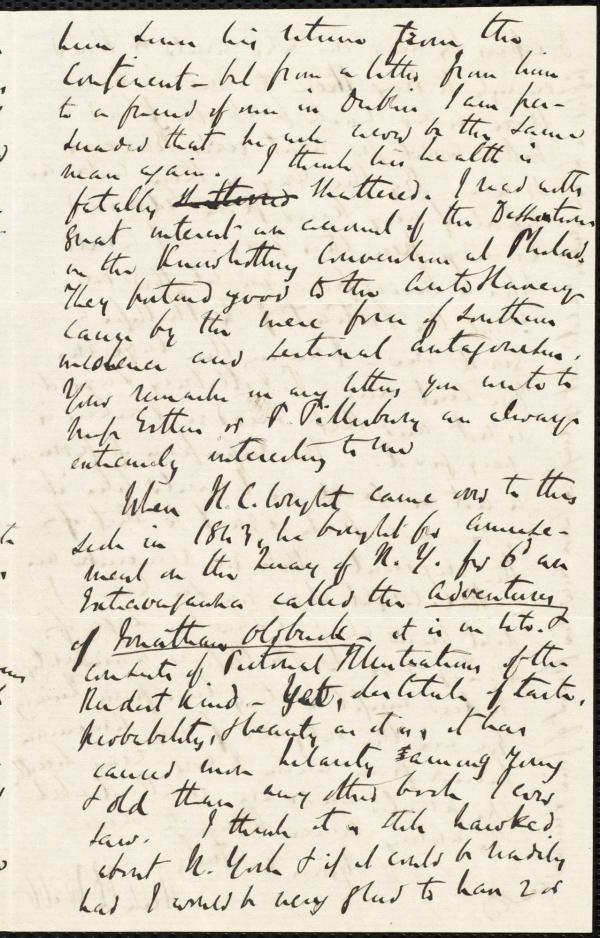 him since his return from the
Continent - but from a letter from him
to a friend of mine in Dublin I am per-
suaded that he will never be the same
man again. I think his health is
fatally shattered shattered. I read with
great interest an account of the Dissentions
in the Knownothing Convention at Philad.
They portend good to the Anti Slavery
cause by the mere force of Southern
insolence and sectional antagonism.
Your remarks in any letters you write to
Miss Estlin or P. Pillsbury are always
extremely interesting to me
When H. C. Wright came over to this
side in 1843, he bought for amuse-
ment on the Quay of N. Y. for 6d an
Extravaganza called the Adventures
of Jonathan Oldbuck - it is in 4to. &
consists of Pictorial Illustrations of the
Rudest kind - Yet, destitute of taste,
probability, & beauty as it is, it has
caused more hilarity among young
& old than any other book I ever
saw. I think it is still hawked
about N. York & if it could be readily
had I would be very glad to have 2 or